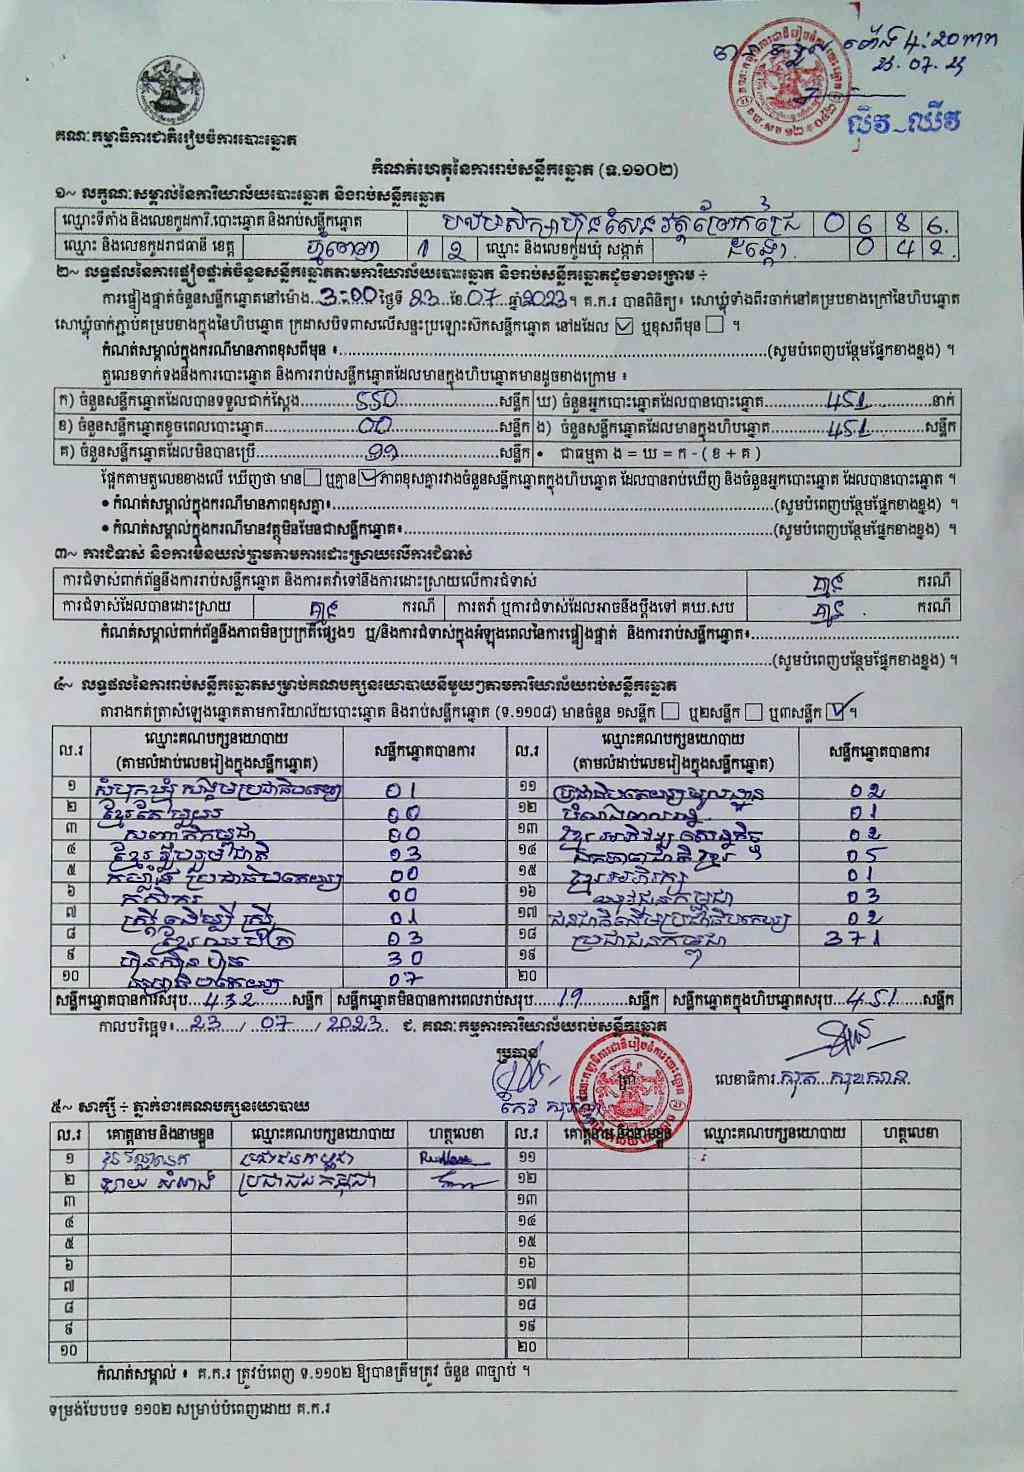 ម៉ោង 4:20
23.07.23
លឹវ ឈីវ
គណៈកម្មាធិការជាតិរៀបចំការបោះឆ្នោត
កំណត់ហេតុនៃការរាប់សន្លឹកឆ្នោត (ទ.១១០២)
១~ លក្ខណៈសម្គាល់នៃការិយាល័យបោះឆ្នោត និងរាប់សន្លឹកឆ្នោត
ឈ្មោះទីតាំង និងលេខកូដការិ.បោះឆ្នោត និងរាប់សន្លឹកឆ្នោត 0 6 8 6
ឈ្មោះ និងលេខកូដរាជធានី ខេត្ត ភ្នំពេញ 1 2 ឈ្មោះ និងលេខកូដឃុំ សង្កាត់ ដង្កោ 0 4 2
២~ លទ្ធផលនៃការផ្ទៀងផ្ទាត់ចំនួនសន្លឹកឆ្នោតតាមការិយាល័យបោះឆ្នោត និងរាប់សន្លឹកឆ្នោតដូចខាងក្រោម ÷
ការផ្ទៀងផ្ទាត់ចំនួនសន្លឹកឆ្នោតនៅម៉ោង..3:00 ថ្ងៃទី 23 ខែ.07 ឆ្នាំ 2023។ គ.ក.រ បានពិនិត្យ៖ សោឃ្លុំទាំងពីរចាក់នៅគម្របខាងក្រៅនៃហិបឆ្នោត
សោឃ្លុំចាក់ភ្ជាប់គម្របខាងក្នុងនៃហិបឆ្នោត ក្រដាសបិទពាសលើសន្ទះប្រឡោះស៊កសន្លឹកឆ្នោត នៅដដែល ☑ ឬខុសពីមុន ☐ ។
កំណត់សម្គាល់ក្នុងករណីមានភាពខុសពីមុន ៖.....(សូមបំពេញបន្ថែមផ្នែកខាងខ្នង) ។
តួលេខទាក់ទងនឹងការបោះឆ្នោត និងការរាប់សន្លឹកឆ្នោតដែលមានក្នុងហិបឆ្នោតមានដូចខាងក្រោម ៖
ក) ចំនួនសន្លឹកឆ្នោតដែលបានទទួលជាក់ស្តែង.....550.....សន្លឹក ឃ) ចំនួនអ្នកបោះឆ្នោតដែលបានបោះឆ្នោត.....451.....នាក់
ខ) ចំនួនសន្លឹកឆ្នោតខូចពេលបោះឆ្នោត.....00.....សន្លឹក ង) ចំនួនសន្លឹកឆ្នោតដែលមានក្នុងហិបឆ្នោត.....451.....សន្លឹក
គ) ចំនួនសន្លឹកឆ្នោតដែលមិនបានប្រើ.....99.....សន្លឹក • ជាធម្មតា ង = ឃ = ក - ( ខ + គ )
ផ្អែកតាមតួលេខខាងលើ ឃើញថា មាន ☐ ឬគ្មាន ☑ ភាពខុសគ្នារវាងចំនួនសន្លឹកឆ្នោតក្នុងហិបឆ្នោត ដែលបានរាប់ឃើញ និងចំនួនអ្នកបោះឆ្នោត ដែលបានបោះឆ្នោត ។
• កំណត់សម្គាល់ក្នុងករណីមានភាពខុសគ្នា៖.....(សូមបំពេញបន្ថែមផ្នែកខាងខ្នង) ។
• កំណត់សម្គាល់ក្នុងករណីមានវត្ថុមិនមែនជាសន្លឹកឆ្នោត៖.....(សូមបំពេញបន្ថែមផ្នែកខាងខ្នង) ។
៣~ ការជំទាស់ និងការមិនយល់ព្រមតាមការដោះស្រាយលើការជំទាស់
ការជំទាស់ពាក់ព័ន្ធនឹងការរាប់សន្លឹកឆ្នោត និងការតវ៉ាទៅនឹងការដោះស្រាយលើការជំទាស់ គ្មាន ករណី
ការជំទាស់ដែលបានដោះស្រាយ គ្មាន ករណី ការតវ៉ា ឬការជំទាស់ដែលអាចនឹងប្តឹងទៅ គឃ.សប គ្មាន ករណី
កំណត់សម្គាល់ពាក់ព័ន្ធនឹងភាពមិនប្រក្រតីផ្សេងៗ ឬ/និងការជំទាស់ក្នុងអំឡុងពេលនៃការផ្ទៀងផ្ទាត់ និងការរាប់សន្លឹកឆ្នោត៖.....
.....(សូមបំពេញបន្ថែមផ្នែកខាងខ្នង) ។
៤~ លទ្ធផលនៃការរាប់សន្លឹកឆ្នោតសម្រាប់គណបក្សនយោបាយនីមួយៗតាមការិយាល័យរាប់សន្លឹកឆ្នោត
តារាងកត់ត្រាសំឡេងឆ្នោតតាមការិយាល័យបោះឆ្នោត និងរាប់សន្លឹកឆ្នោត (ទ.១១០៨) មានចំនួន ១សន្លឹក ☐ ឬ២សន្លឹក ☐ ឬ៣សន្លឹក ☑ ។
ល.រ ឈ្មោះគណបក្សនយោបាយ (តាមលំដាប់លេខរៀងក្នុងសន្លឹកឆ្នោត) សន្លឹកឆ្នោតបានការ ល.រ ឈ្មោះគណបក្សនយោបាយ (តាមលំដាប់លេខរៀងក្នុងសន្លឹកឆ្នោត) សន្លឹកឆ្នោតបានការ
១ សំបុកឃ្មុំសង្គមប្រជាធិបតេយ្យ 01 ១១ ប្រជាធិបតេយ្យមូលដ្ឋាន 02
២ ខ្មែរតែមួយ 00 ១២ 01
៣ សញ្ជាតិកម្ពុជា 00 ១៣ ខ្មែរអភិវឌ្ឍន៍សេដ្ឋកិច្ច 02
៤ ខ្មែររួបរួមជាតិ 13 ១៤ ឯកភាពជាតិខ្មែរ 05
៥ កម្លាំងប្រជាធិបតេយ្យ 00 ១៥ ខ្មែរអភិរក្ស 01
៦ កសិករ 00 ១៦ យុវជនកម្ពុជា 03
៧ ស្ត្រីដើម្បីស្ត្រី 01 ១៧ ជនជាតិដើមប្រជាធិបតេយ្យ 02
៨ ខ្មែរឈប់ក្រ 03 ១៨ ប្រជាជនកម្ពុជា 371
៩ ហ៊្វុនស៊ិនប៉ិច 30 ១៩
១០ 07 ២០
សន្លឹកឆ្នោតបានការសរុប...432...សន្លឹក សន្លឹកឆ្នោតមិនបានការពេលរាប់សរុប...19...សន្លឹក សន្លឹកឆ្នោតក្នុងហិបឆ្នោតសរុប...451...សន្លឹក
កាលបរិច្ឆេទ៖ 23 / 07 / 2023 ជ. គណៈកម្មការការិយាល័យរាប់សន្លឹកឆ្នោត
ប្រធាន ត្រា លេខាធិការ
កែវ
៥~ សាក្សី ÷ ភ្នាក់ងារគណបក្សនយោបាយ
ល.រ គោត្តនាម និងនាមខ្លួន ឈ្មោះគណបក្សនយោបាយ ហត្ថលេខា ល.រ គោត្តនាម និងនាមខ្លួន ឈ្មោះគណបក្សនយោបាយ ហត្ថលេខា
១ ប្រជាជនកម្ពុជា ១១
២ ប្រជាជនកម្ពុជា ១២
៣ ១៣
៤ ១៤
៥ ១៥
៦ ១៦
៧ ១៧
៨ ១៨
៩ ១៩
១០ ២០
កំណត់សម្គាល់ ៖ គ.ក.រ ត្រូវបំពេញ ទ.១១០២ ឱ្យបានត្រឹមត្រូវ ចំនួន ៣ច្បាប់ ។
ទម្រង់បែបបទ ១១០២ សម្រាប់បំពេញដោយ គ.ក.រ